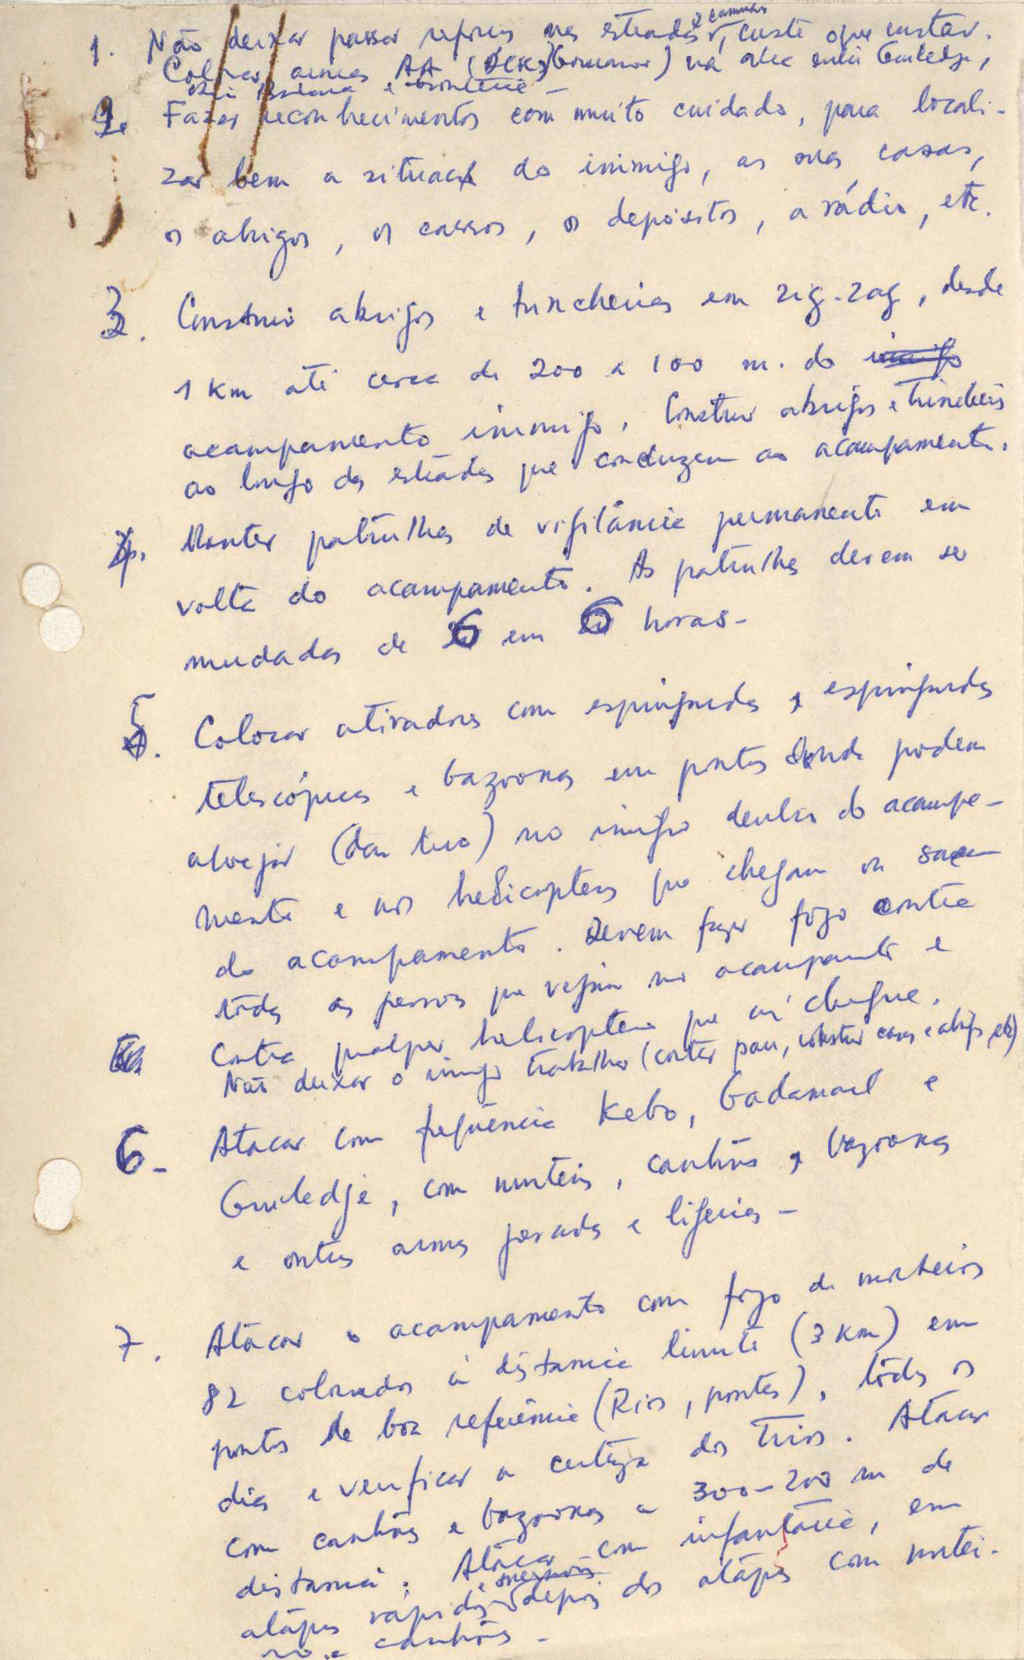 e caminhos
1. Não deixar passar reforços nas estradas, custe o que custar.
Colocar armas AA (DCK) na área entre Guiledge,
2. Fazer reconhecimentos com muito cuidado, para locali-
zar bem a situaç do inimigo, as suas casas,
os abrigos, os carros, os depósitos, a rádio, etc.
3. Construir abrigos e trincheiras em zig-zag, desde
1 Km até cerca de 200 a 100 m. do inimigo
acampamento inimigo. Construir abrigos e trincheiras
ao longo das estradas que conduzem ao acampamento.
4. Manter patrulhas de vigilância permanente em
volta do acampamento. As patrulhas devem ser
mudadas de 6 em 6 horas-
5. Colocar atiradores com espingardas, espingardas
telescópicas e bazookas em pontos donde podem
alvejar (dar tiro) no inimigo dentro do acampa-
mento e nos helicopteros que chegam ou saem
do acampamento. Devem fazer fogo contra
todas as pessoas que vejam no acampamento e
contra qualquer helicoptero que aí chegue.
Não deixar o inimigo trabalhar (cortar pau, construir casas e abrigos, etc)
6- Atacar com frequência Kebo, Gadamael e
Guiledje, com morteiros, canhões, bazookas
e outras armas pesadas e ligeiras-
7. Atacar o acampamento com fogo de morteiros
82 colocados à distancia limite (3 Km) em
pontos de boa referência (Rios, pontes), todos os
dias e verificar a certeza dos tiros. Atacar
com canhões e bazookas a 300-200 m de
distancia. Atacar com infantaria, em
ataques rápidos depois dos ataques com mortei-
ros e canhões-